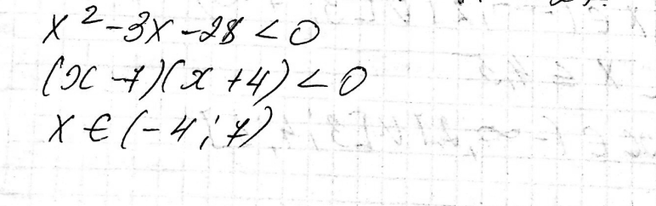 x² - 3x - 28 < 0
(x - 7)(x + 4) < 0
x ∈ (-4; 7)